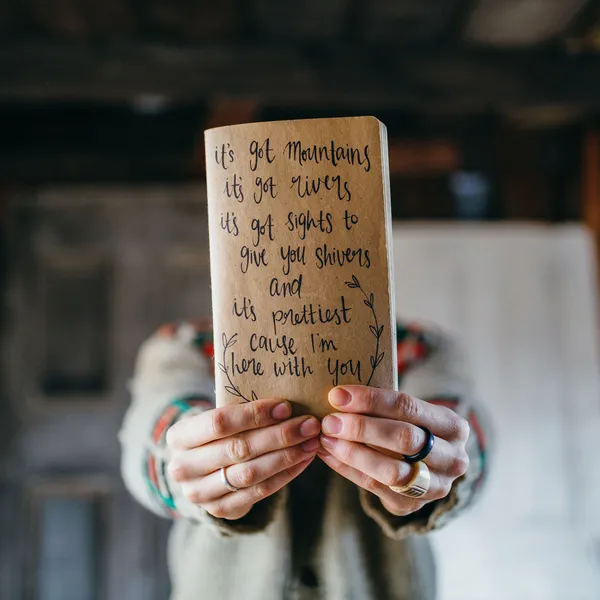 it's got Mountains
it's got rivers
it's got sights to
give you shivers
and
it's prettiest
cause I'm
here with you